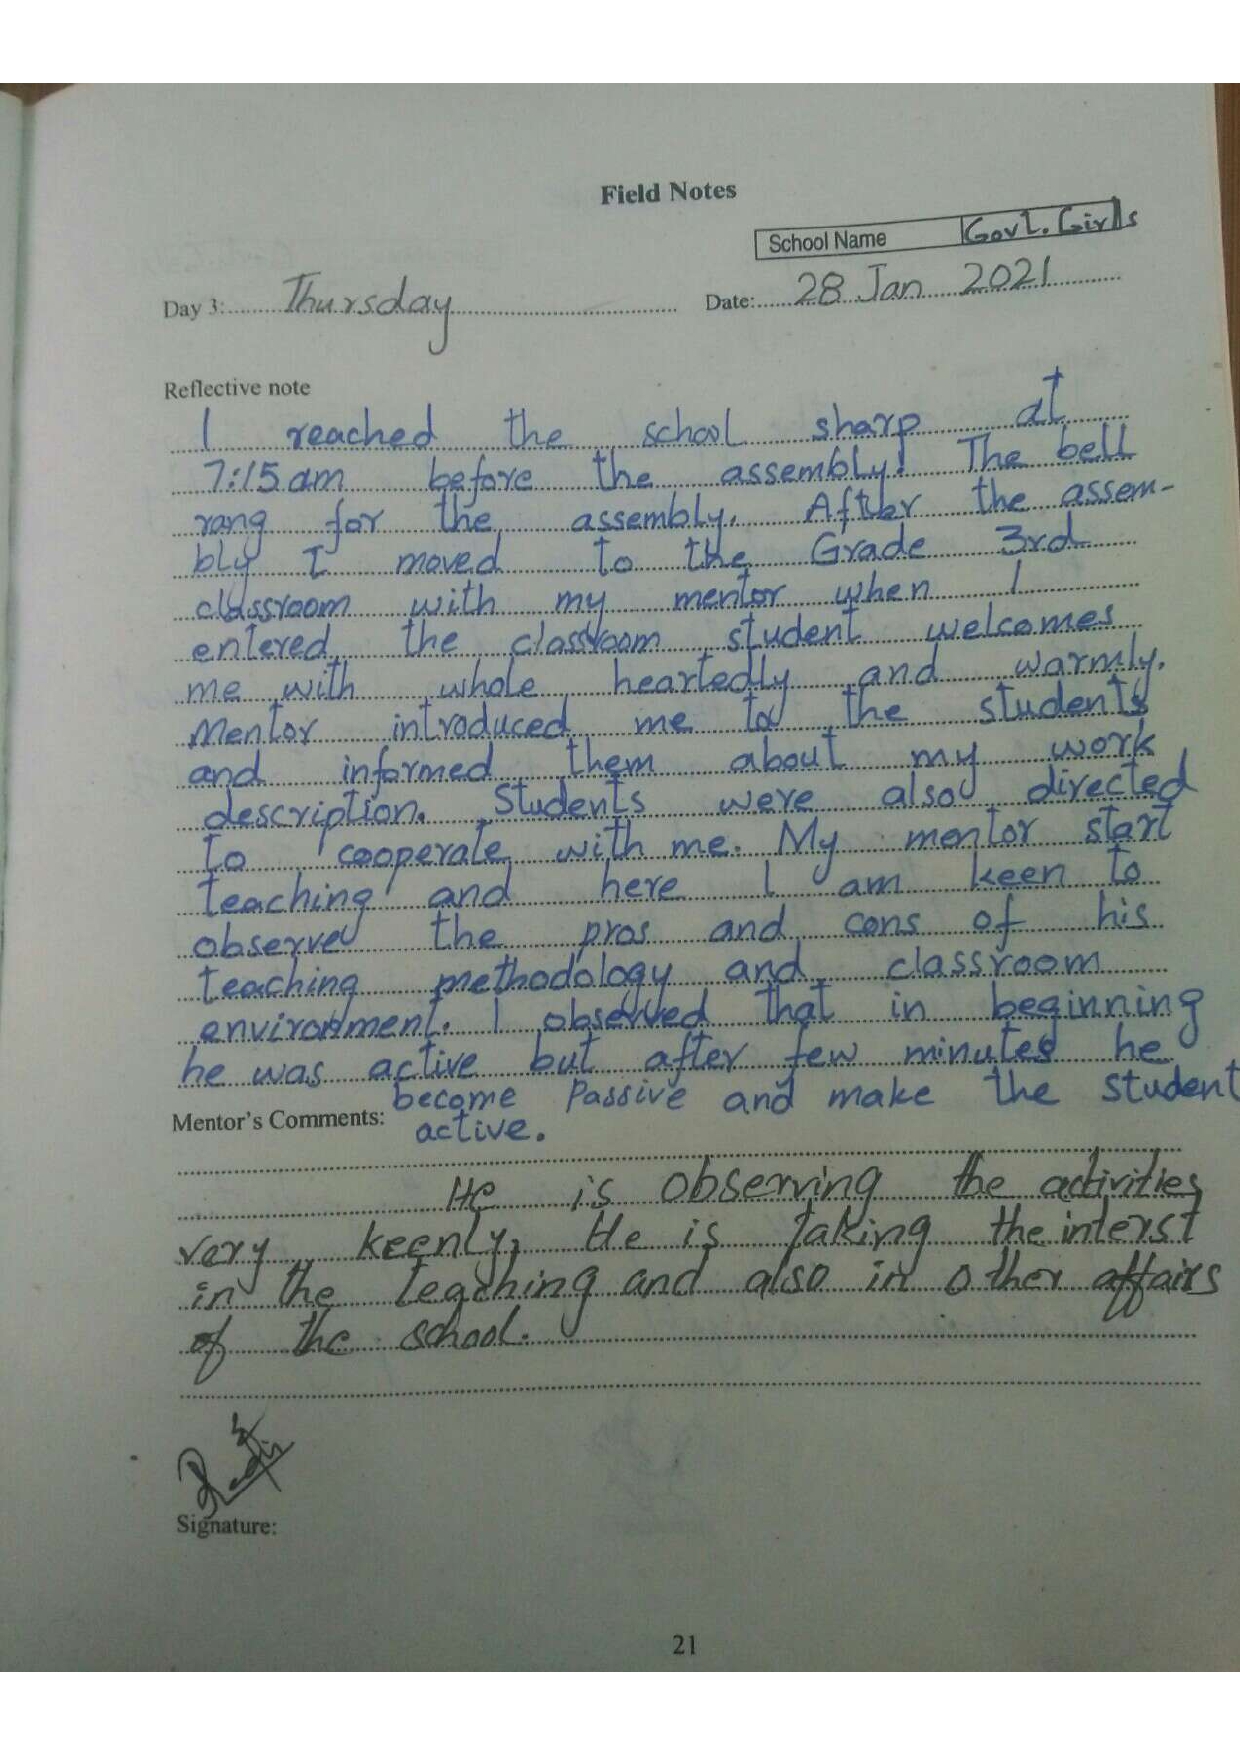 Field Notes
School Name Govt. Girls
Day 3: Thursday Date: 28 Jan 2021
Reflective note
I reached the school sharp at
7:15am before the assembly! The bell
rang for the assembly. After the assem-
bly I moved to the Grade 3rd
classroom with my mentor when I
entered the classroom student welcomes
me with whole heartedly and warmly.
Mentor introduced me to the students
and informed them about my work
description. Students were also directed
to cooperate with me. My mentor start
teaching and here I am keen to
observe the pros and cons of his
teaching methodology and classroom
environment. I observed that in beginning
he was active but after few minutes he
become Passive and make the student
Mentor's Comments: active.
He is observing the activities
very keenly, He is taking the interst
in the teaching and also in other affairs
of the school.
Signature:
21